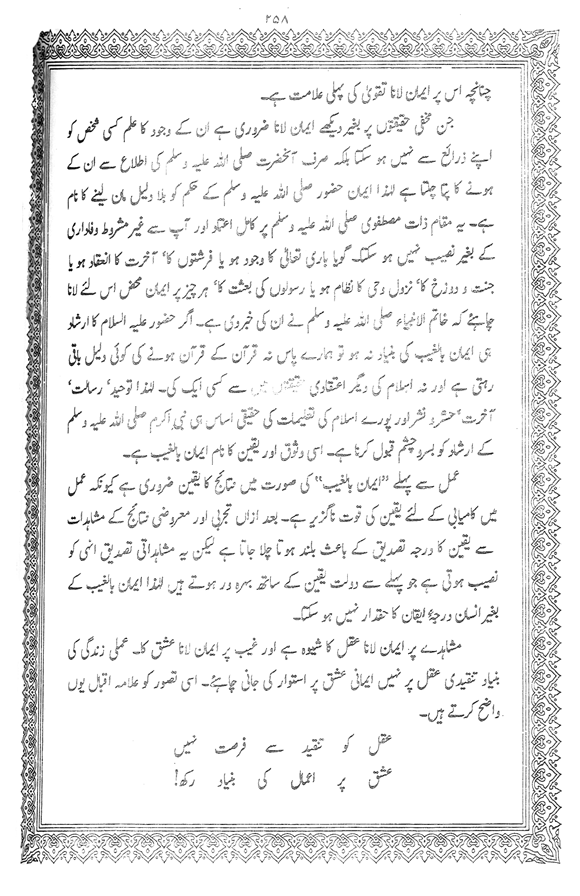 ۲۵۸
چنانچہ اس پر ایمان لانا تقویٰ کی پہلی علامت ہے۔
جن مخفی حقیقتوں پر بغیر دیکھے ایمان لانا ضروری ہے ان کے وجود کا علم کسی شخص کو
اپنے ذرائع سے نہیں ہو سکتا بلکہ صرف آنحضرت صلی اللہ علیہ وسلم کی اطلاع سے ان کے
ہونے کا پتا چلتا ہے لہٰذا ایمان حضور صلی اللہ علیہ وسلم کے حکم کو بلا دلیل مان لینے کا نام
ہے۔ یہ مقام ذات مصطفوی صلی اللہ علیہ وسلم پر کامل اعتماد اور آپ سے غیر مشروط وفاداری
کے بغیر نصیب نہیں ہو سکتا۔ گویا باری تعالیٰ کا وجود ہو یا فرشتوں کا‘ آخرت کا انعقاد ہو یا
جنت و دوزخ کا‘ نزول وحی کا نظام ہو یا رسولوں کی بعثت کا‘ ہر چیز پر ایمان محض اس لئے لانا
چاہئے کہ خاتم الانبیاء صلی اللہ علیہ وسلم نے ان کی خبر دی ہے۔ اگر حضور علیہ السلام کا ارشاد
ہی ایمان بالغیب کی بنیاد نہ ہو تو ہمارے پاس نہ قرآن کے قرآن ہونے کی کوئی دلیل باقی
رہتی ہے اور نہ اسلام کی دیگر اعتقادی حقیقتوں میں سے کسی ایک کی۔ لہٰذا توحید‘ رسالت‘
آخرت‘ حشر و نشر اور پورے اسلام کی تعلیمات کی حقیقی اساس ہی نبی اکرم صلی اللہ علیہ وسلم
کے ارشاد کو بسر و چشم قبول کرنا ہے۔ اسی وثوق اور یقین کا نام ایمان بالغیب ہے۔
عمل سے پہلے ’’ایمان بالغیب‘‘ کی صورت میں نتائج کا یقین ضروری ہے کیونکہ عمل
میں کامیابی کے لئے یقین کی قوت ناگزیر ہے۔ بعد ازاں تجربی اور معروضی نتائج کے مشاہدات
سے یقین کا درجہ تصدیق کے باعث بلند ہوتا چلا جاتا ہے لیکن یہ مشاہداتی تصدیق انہی کو
نصیب ہوتی ہے جو پہلے سے دولت یقین کے ساتھ بہرہ ور ہوتے ہیں لہٰذا ایمان بالغیب کے
بغیر انسان درجۂ ایقان کا حقدار نہیں ہو سکتا۔
مشاہدے پر ایمان لانا عقل کا شیوہ ہے اور غیب پر ایمان لانا عشق کا۔ عملی زندگی کی
بنیاد تنقیدی عقل پر نہیں ایمانی عشق پر استوار کی جانی چاہئے۔ اسی تصور کو علامہ اقبال یوں
واضح کرتے ہیں۔
عقل کو تنقید سے فرصت نہیں
عشق پر اعمال کی بنیاد رکھ!